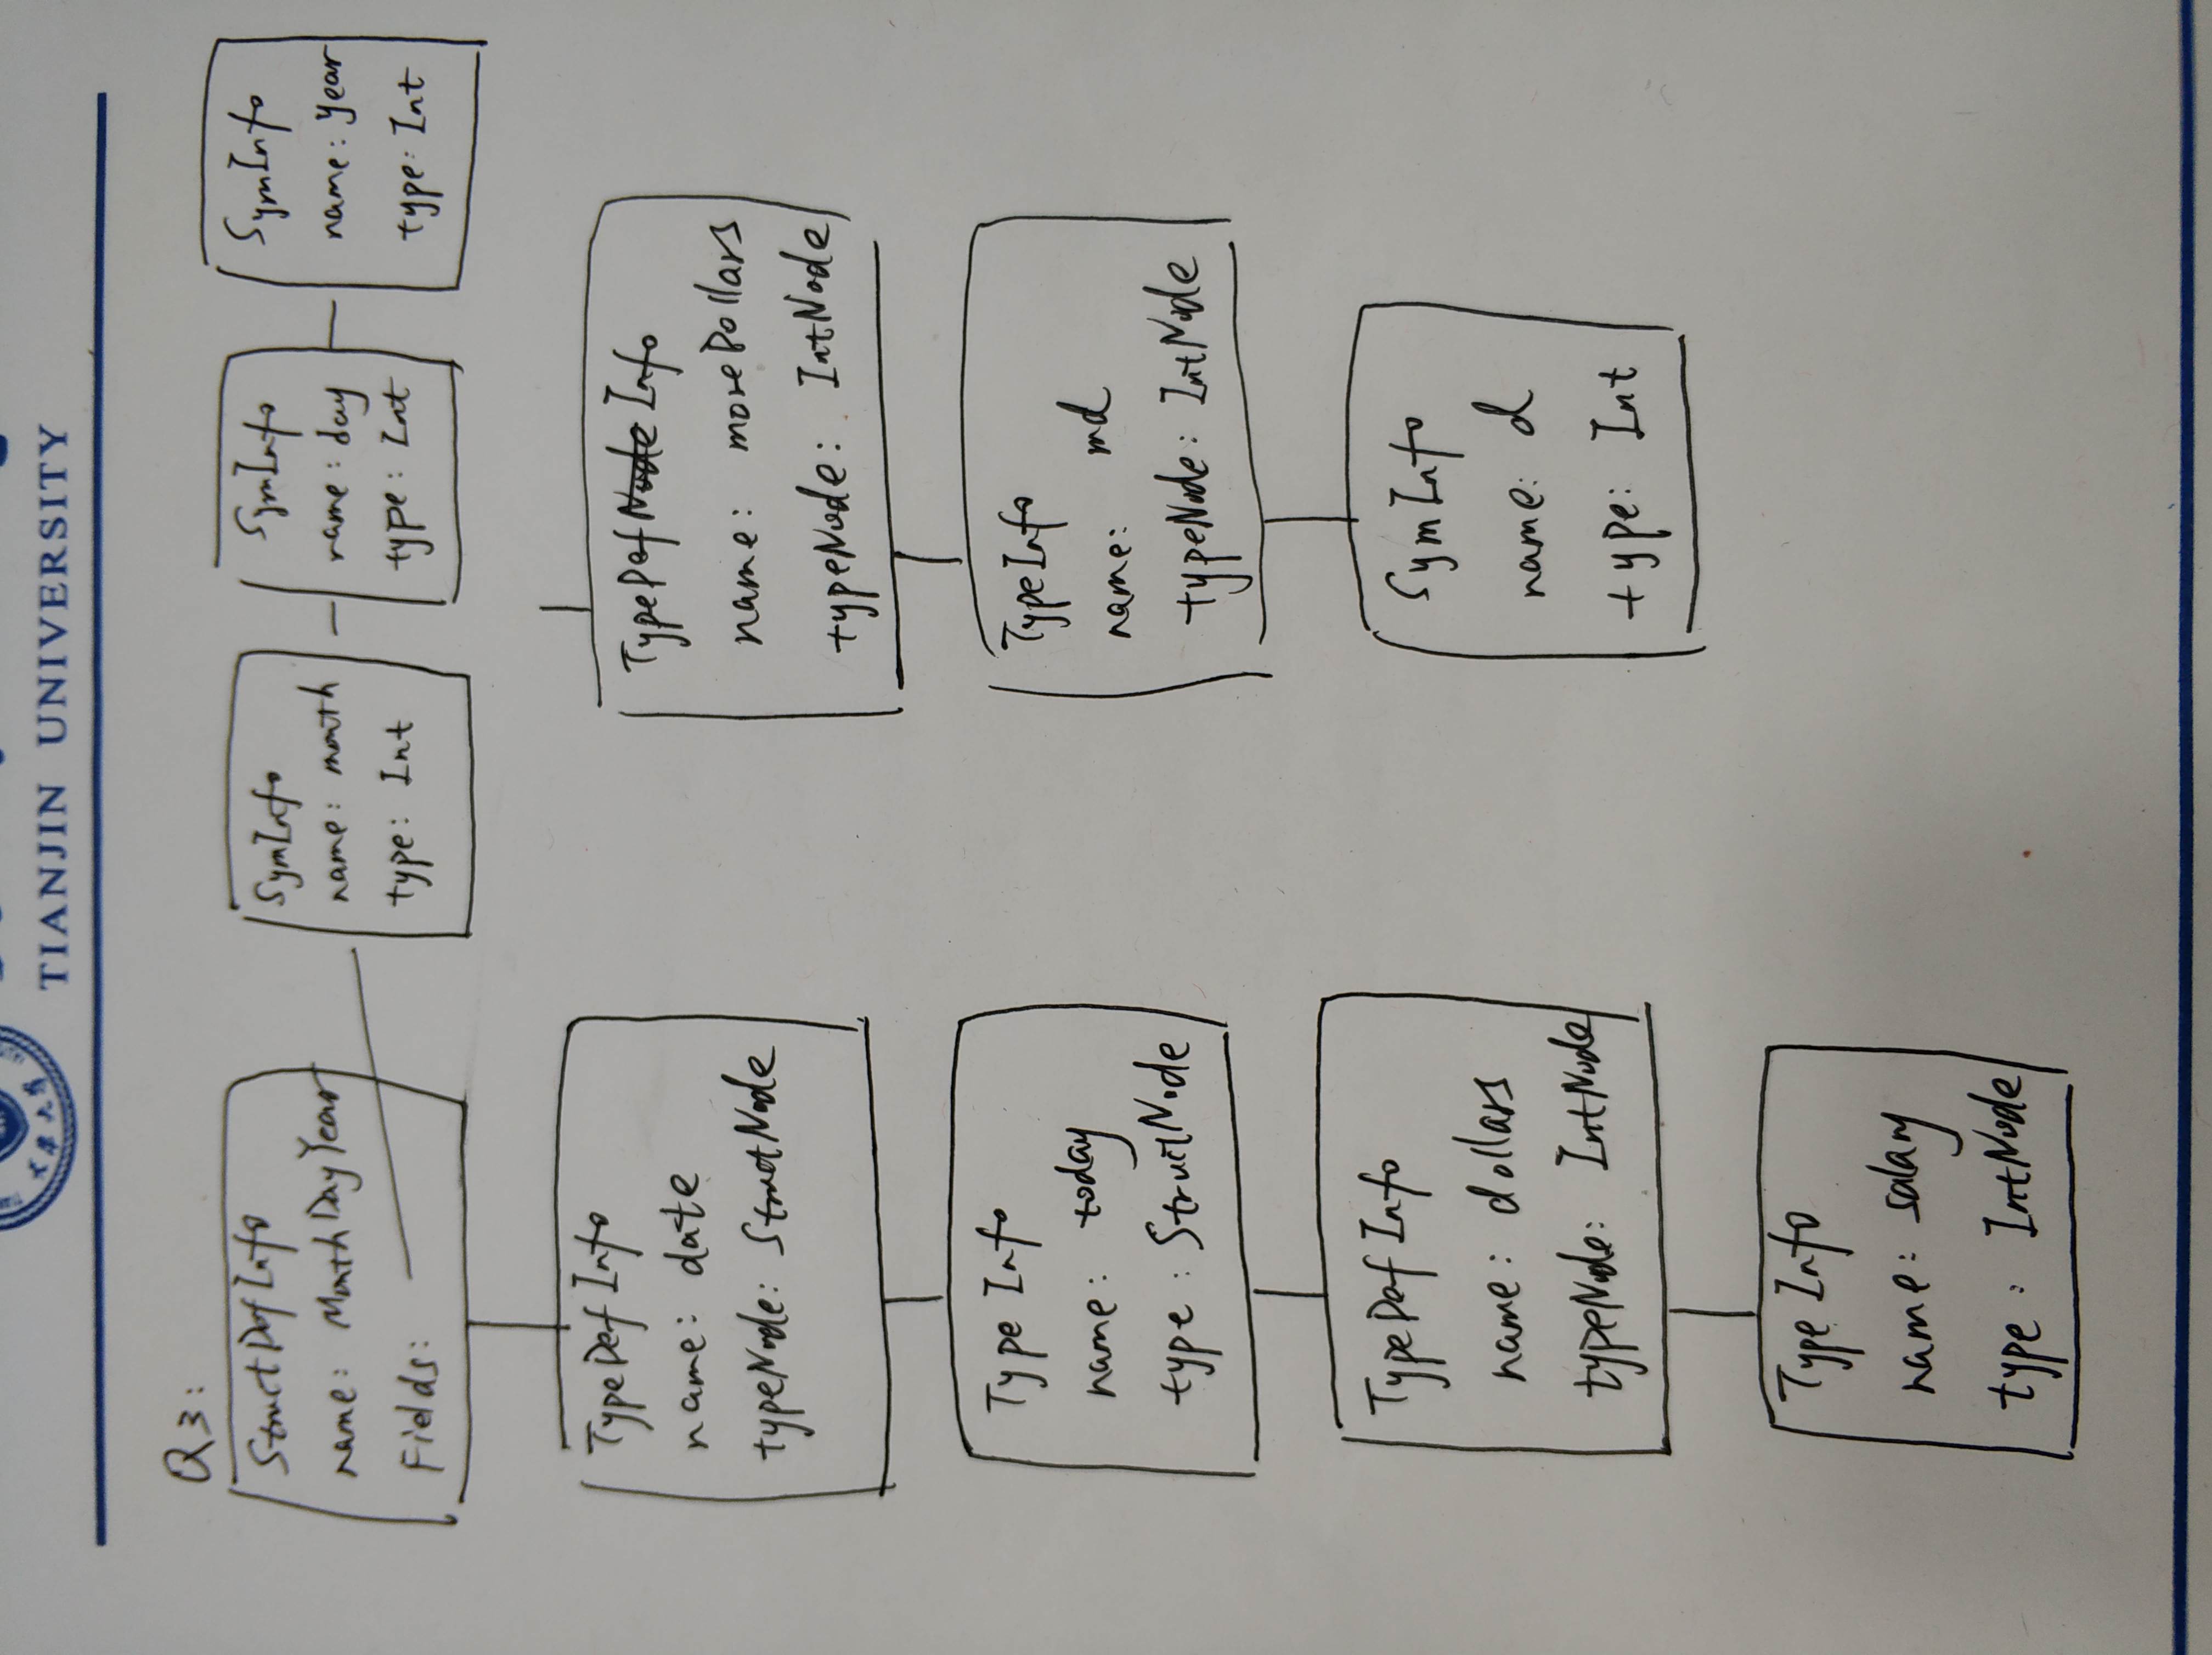 TIANJIN UNIVERSITY
Q3:
StructDefInfo
name: MonthDayYear
Fields:
SymInfo
name: month
type: Int
SymInfo
name: day
type: Int
SymInfo
name: year
type: Int
TypeDef Info
name: date
typeNode: StructNode
Type Info
name: today
type: StructNode
TypeDef Info
name: dollars
typeNode: IntNode
Type Info
name: salary
type: IntNode
TypeDef Node Info
name: moreDollars
typeNode: IntNode
TypeInfo
name: md
typeNode: IntNode
SymInfo
name: d
type: Int